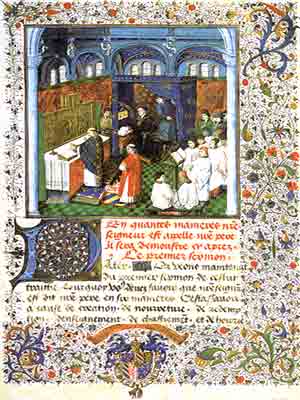 En quantes manieres nre
seigneur est apelle nre pere
il sera demonstre cy apres
Le premier sermon
maintenant
du premier sermon de cestui
traittie pourquoy devez savoir que nre seigneur
est dit nre pere en six manieres Cest assavoir
a cause de creation · de nourreture · de redemp
tion · denseignement · de chastiement · et de